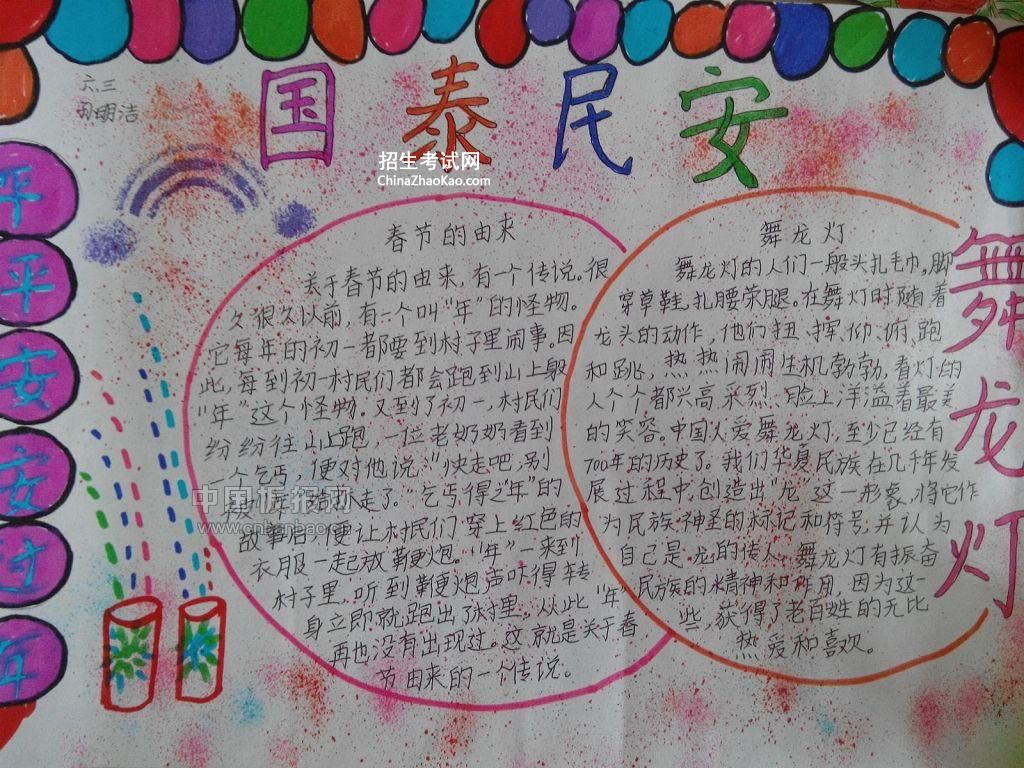 六.三
明洁
国泰民安
招生考试网
ChinaZhaoKao.com
平
平
安
安
过
年
春节的由来
关于春节的由来,有一个传说。很
久很久以前,有一个叫“年”的怪物。
它每年的初一都要到村子里闹事。因
此,每到初一村民们都会跑到山上躲
“年”这个怪物。又到了初一,村民们
纷纷往山上跑,一位老奶奶看到
一个乞丐,便对他说:“快走吧,别
走了。”乞丐得之“年”的
故事后,便让村民们穿上红色的
衣服一起放鞭炮。“年”一来到
村子里,听到鞭炮声吓得转
身立即就跑出了村里。从此“年”
再也没有出现过。这就是关于春
节由来的一个传说。
中国板报网
www.cnbanbao.com
舞龙灯
舞龙灯的人们一般头扎毛巾,脚
穿草鞋,扎腰荣腿。在舞灯时随着
龙头的动作,他们扭、挥、仰、俯、跑
和跳,热热闹闹生机勃勃,看灯的
人个个都兴高采烈,脸上洋溢着最美
的笑容。中国人爱舞龙灯,至少已经有
700年的历史了。我们华夏民族在几千年发
展过程中,创造出“龙”这一形象,将它作
为民族神圣的标记和符号,并认为
自己是龙的传人。舞龙灯有振奋
民族的精神和作用,因为这一
些,获得了老百姓的无比
热爱和喜欢。
舞龙灯